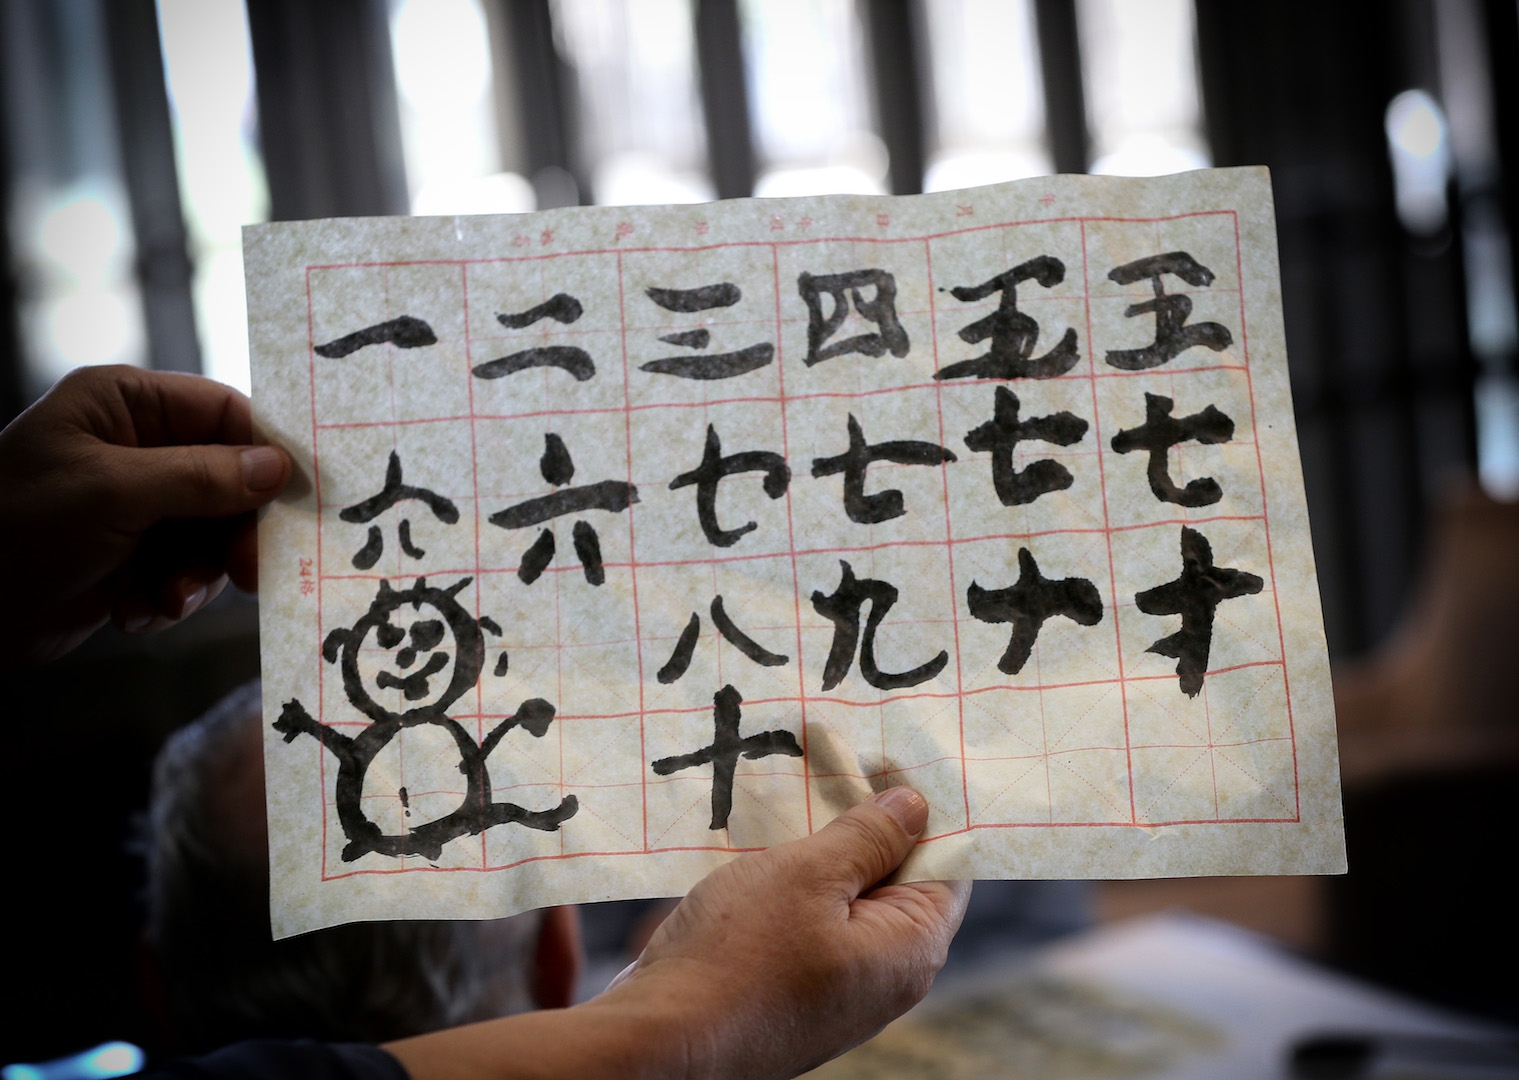 一 二 三 四 五 五
六 六 七 七 七 七
八 九 ナ 才
十
24格